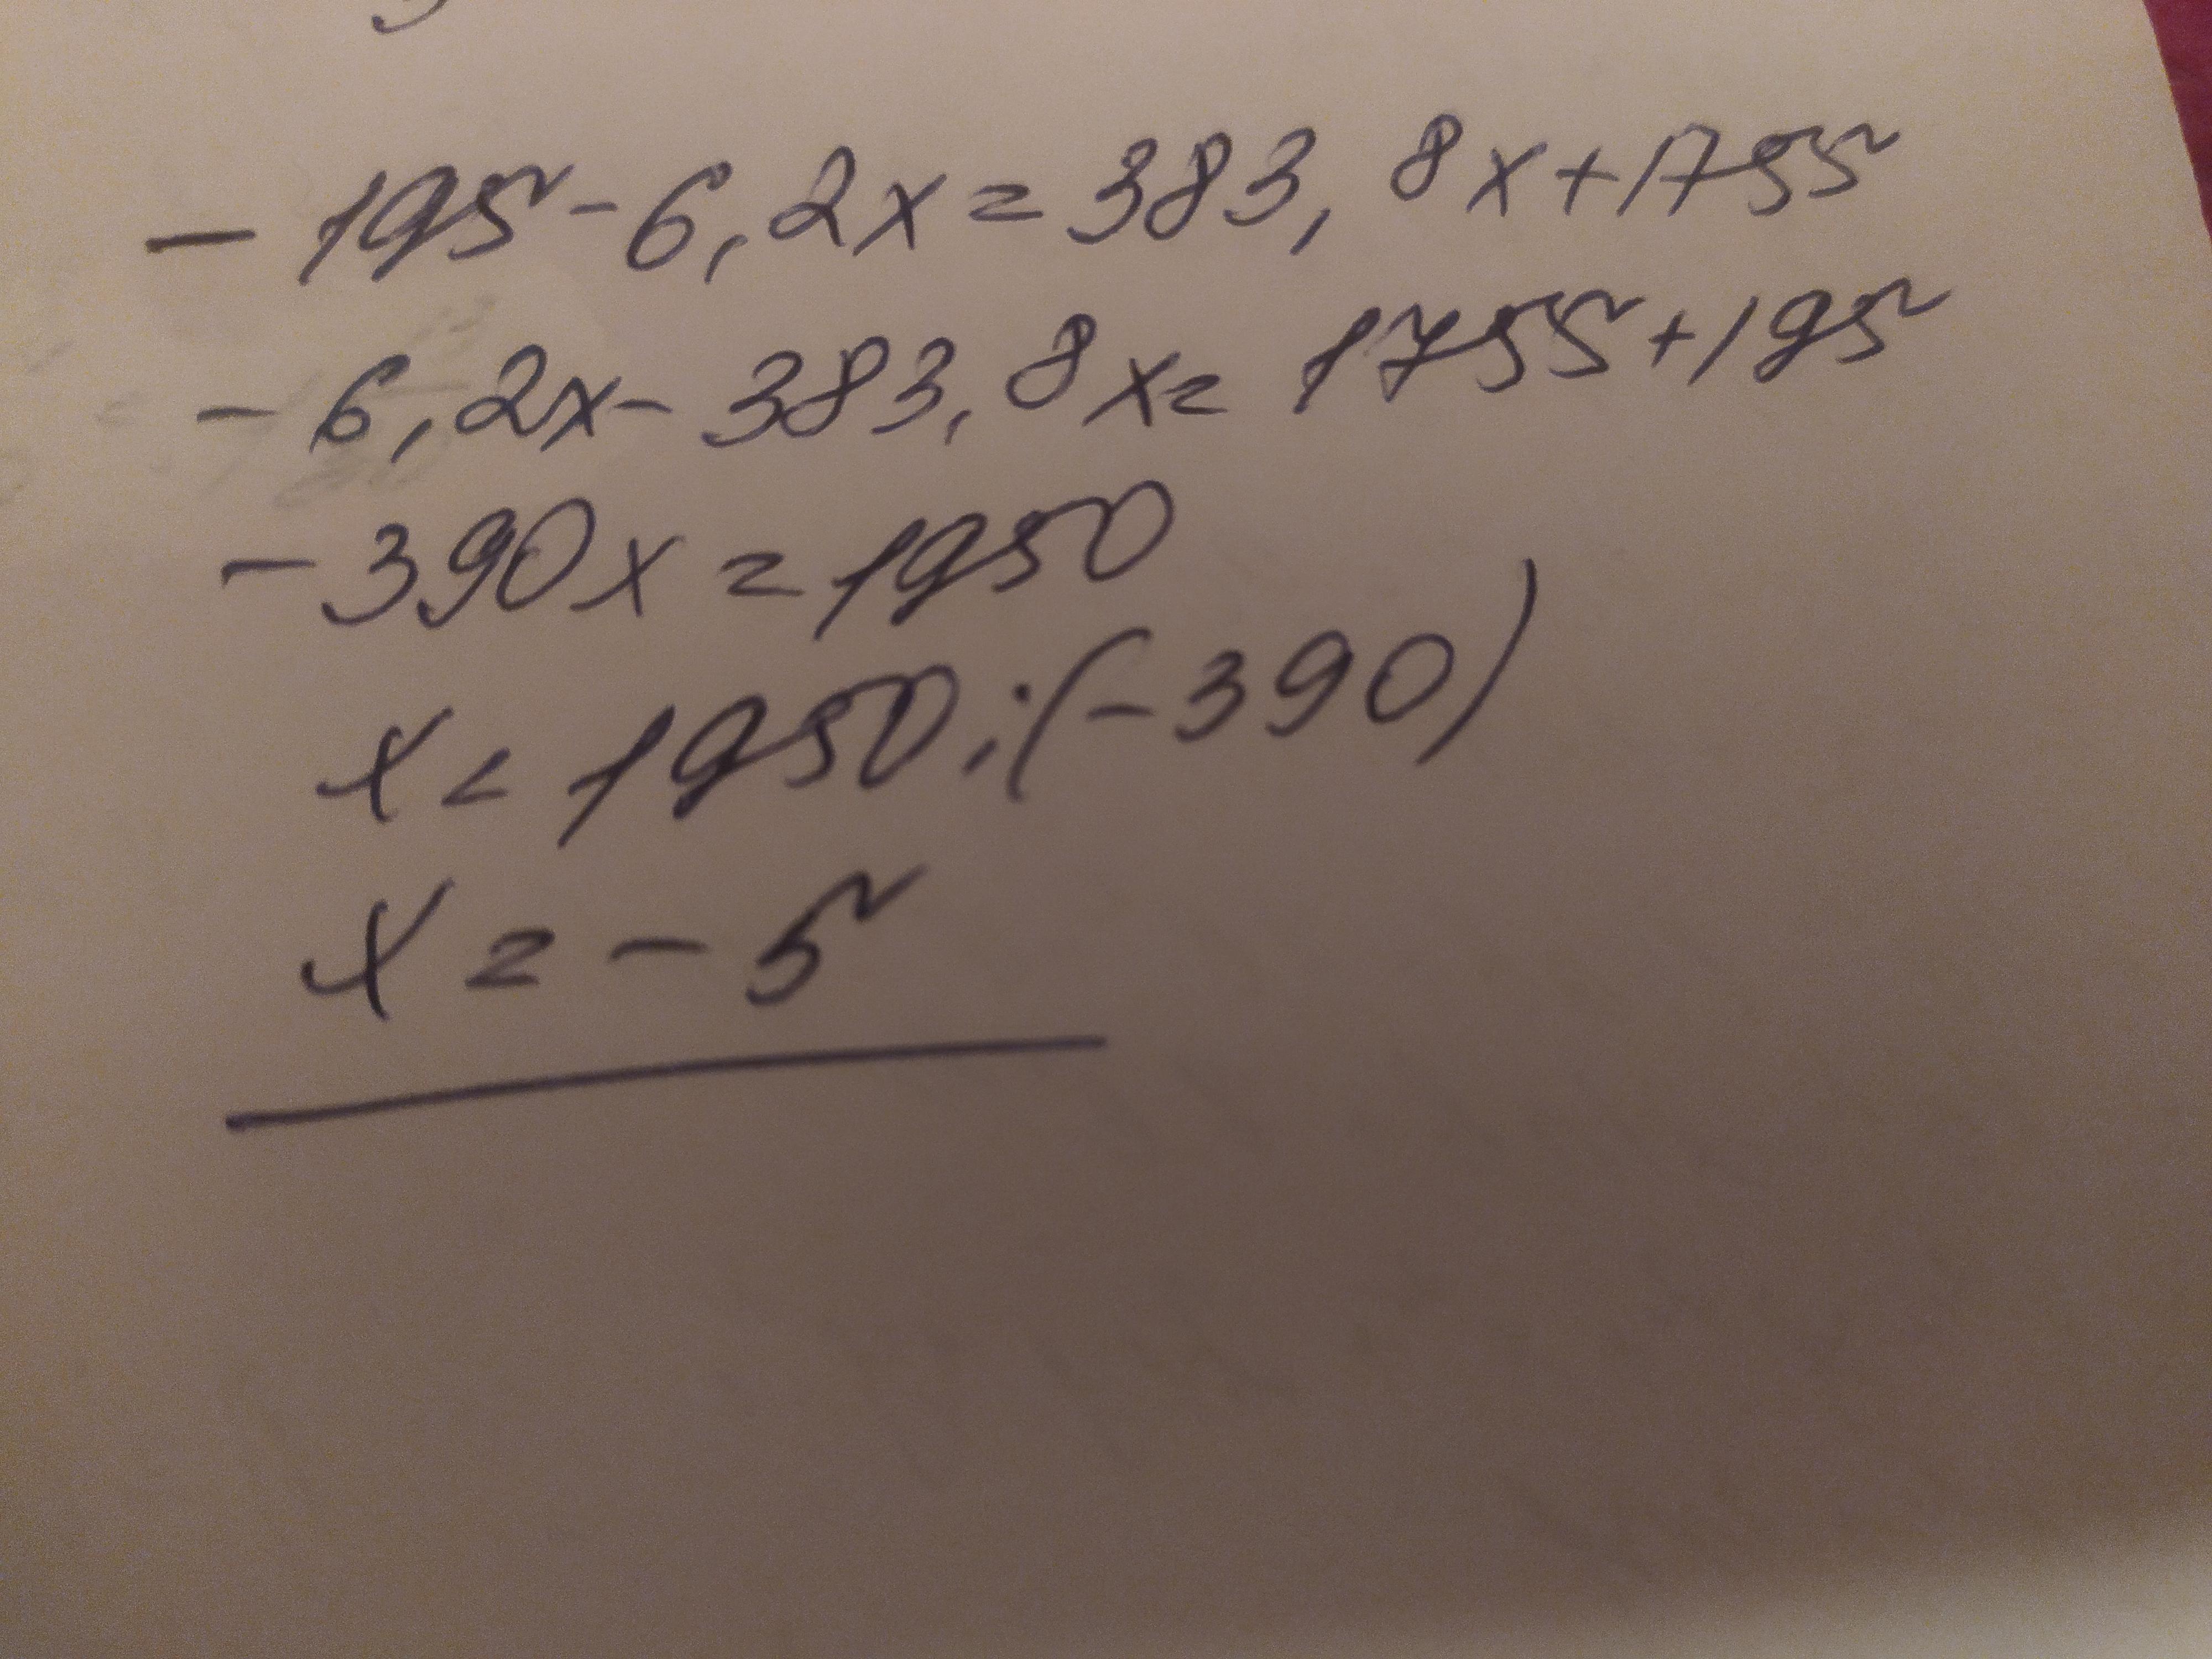 - 195 - 6,2x = 383,8x + 1755
- 6,2x - 383,8x = 1755 + 195
- 390x = 1950
x = 1950 : (-390)
x = - 5